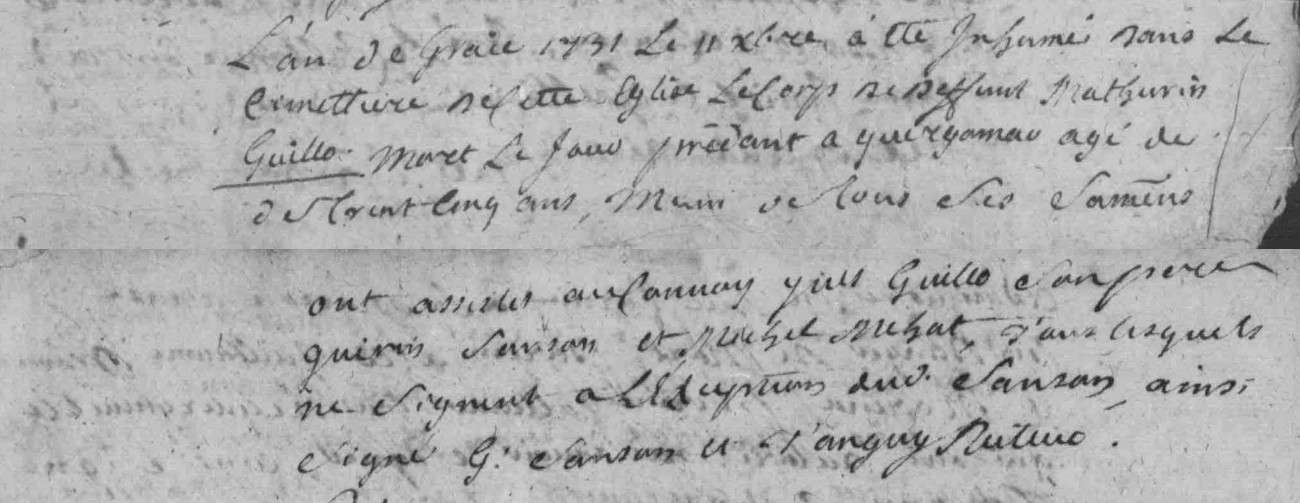 L'an de Grace 1731 Le 11 xbre a ete Inhumé dans Le
Cimettiere de Cette Eglise Le Corps de deffunt Mathurin
Guillo. Mort Le Jour precedant a quergamau agé de
de trent Cinq ans, Muni de tous Ses Sacmens
ont assistes au Convoy yves Guillo Son pere
querin Sanson et Michel Mehat, tous lesquels
ne Signent a L'Exception dud. Sanson, ainsi
Signé G. Sanson et Tanguy